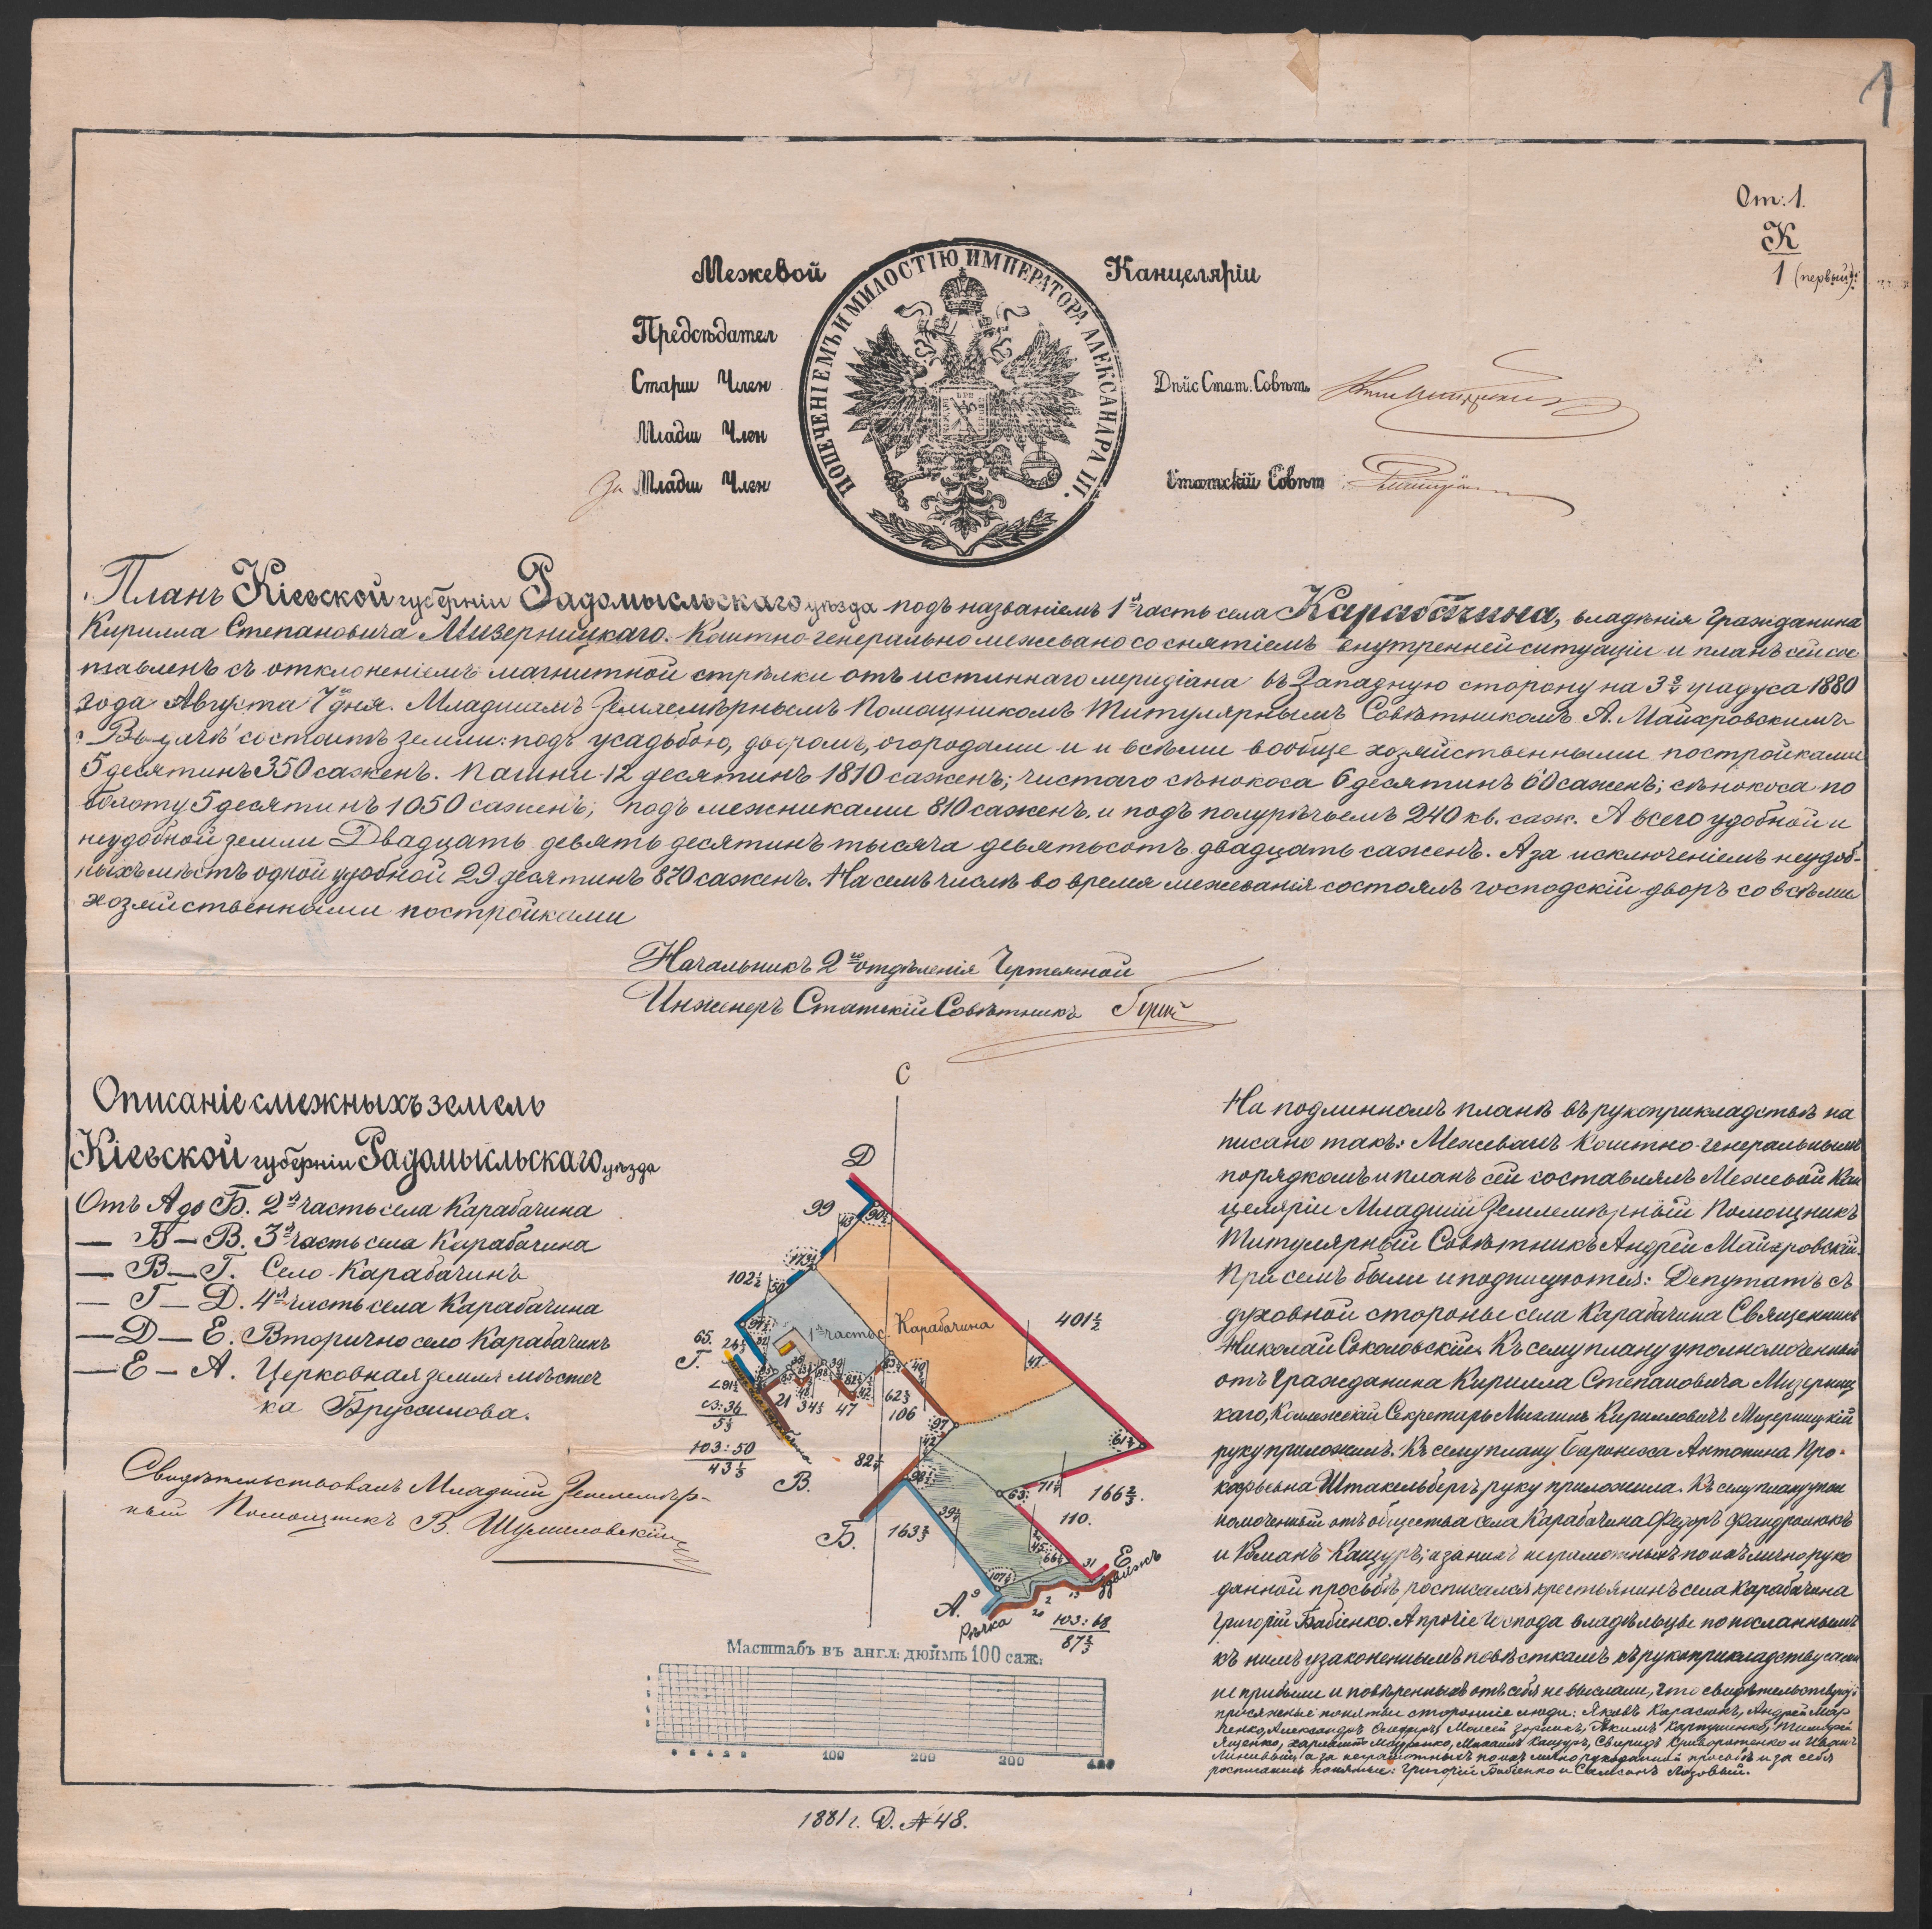 1
От: 1.
К
1 (первый):
Межевой Канцеляріи
ПОПЕЧЕНІЕМЪ И МИЛОСТІЮ ИМПЕРАТОРА АЛЕКСАНДРА III.
Предсѣдател
Старш Член Дѣйс Стат. Совѣтъ
Младш Член
За Младш Член Статскій Совѣт
Планъ Кіевской губерніи Радомысльскаго уѣзда подъ названіемъ 1я часть села Карабачина, владѣнія Гражданина
Кирилла Степановича Мизерницкаго. Коштно-генерально межевано со снятіемъ внутренней ситуаціи и планъ сей сос
тавленъ съ отклоненіемъ магнитной стрѣлки отъ истиннаго меридіана въ Западную сторону на 3 2/4 градуса 1880
года Августа 7го дня. Младшимъ Землемѣрнымъ Помощникомъ Титулярнымъ Совѣтникомъ А. Майхровскимъ
состоитъ земли: подъ усадьбою, дворомъ, огородами и и всѣми вообще хозяйственными постройками
5 десятинъ 350 саженъ. Пашни 12 десятинъ 1810 саженъ; чистаго сѣнокоса 6 десятинъ 60 саженъ; сѣнокоса по
болоту 5 десятинъ 1050 саженъ; подъ межниками 810 саженъ. и подъ полурѣчьемъ 240 кв. саж. А всего удобной и
неудобной земли Двадцать девять десятинъ тысяча девятьсотъ двадцать саженъ. А за исключеніемъ неудоб-
ныхъ мѣстъ одной удобной 29 десятинъ 870 саженъ. На семъ числѣ во время межеванія состоялъ господскій дворъ со всѣми
хозяйственными постройками
Начальникъ 2го отдѣленія Чертежной
Инженеръ Статскій Совѣтникъ
Описаніе смежныхъ земель
Кіевской губерніи Радомысльскаго уѣзда
Отъ А до Б. 2я часть села Карабачина
— Б — В. 3я часть села Карабачина
— В — Г. Село Карабачинъ
— Г — Д. 4я часть села Карабачина
— Д — Е. Вторично село Карабачинъ
— Е — А. Церковная земля мѣстеч
ка Бруссилова.
Свидѣтельствовалъ Младшій Землемѣр-
ный Помощникъ В. Шумиловскій
С
Д
99
43
90½
113½
102½
50
401½
1я часть с. Карабачина
65.
Г.
47
21
34½
47
62⅔
106
97
42
61½
103:50
43⅓
82½
В.
98½
63
71½
166⅔.
110.
Б.
163⅔
39½
45
66½
31
Е
107½
А.
9
Рѣчка
Здвижъ
ЮЗ:68
87⅔
Масштабъ въ англ: дюймѣ 100 саж:
100 200 300 400
На подлинномъ планѣ въ рукоприкладствѣ на
писано такъ: Межевалъ Коштно-генеральнымъ
порядкомъ и планъ сей составлялъ Межевой Кан
целяріи Младшій Землемѣрный Помощникъ
Титулярный Совѣтникъ Андрей Майхровскій.
При семъ были и подписуются: Депутатъ съ
духовной стороны села Карабачина Священникъ
Николай Соколовскій. Къ сему плану уполномоченный
отъ Гражданина Кирилла Степановича Мизерниц
каго, Коллежскій Секретарь Михаилъ Кирилловичъ Мизерницкій
руку приложилъ. Къ сему плану Баронесса Антонина Про-
кофьевна Штакельбергъ руку приложила. Къ сему плану упол
номоченный отъ общества села Карабачина Федоръ Фандралюкъ
и Романъ Кашуръ; а за нихъ неграмотныхъ по ихъ лично руко
данной просьбѣ росписался крестьянинъ села Карабачина
Григорій Бабіенко. А прочіе Господа владѣльцы по посланнымъ
къ нимъ узаконеннымъ повѣсткамъ къ рукоприкладству сами
не прибыли и повѣренныхъ отъ себя не выслали, что свидѣтельствуютъ
присяжные понятые сторонніе люди: Яковъ Карасюкъ, Андрей Мар
ченко, Александръ Моисей Якимъ Карпушенко, Тимофей
Ященко, Михаилъ Кашуръ, Свиридъ Криворотенко и Иванъ
а за неграмотныхъ по ихъ лично рукоданной просьбѣ и за себя
росписались понятые: Григорій Бабіенко и Самсонъ Лозовый.
1881 г. Д. № 48.